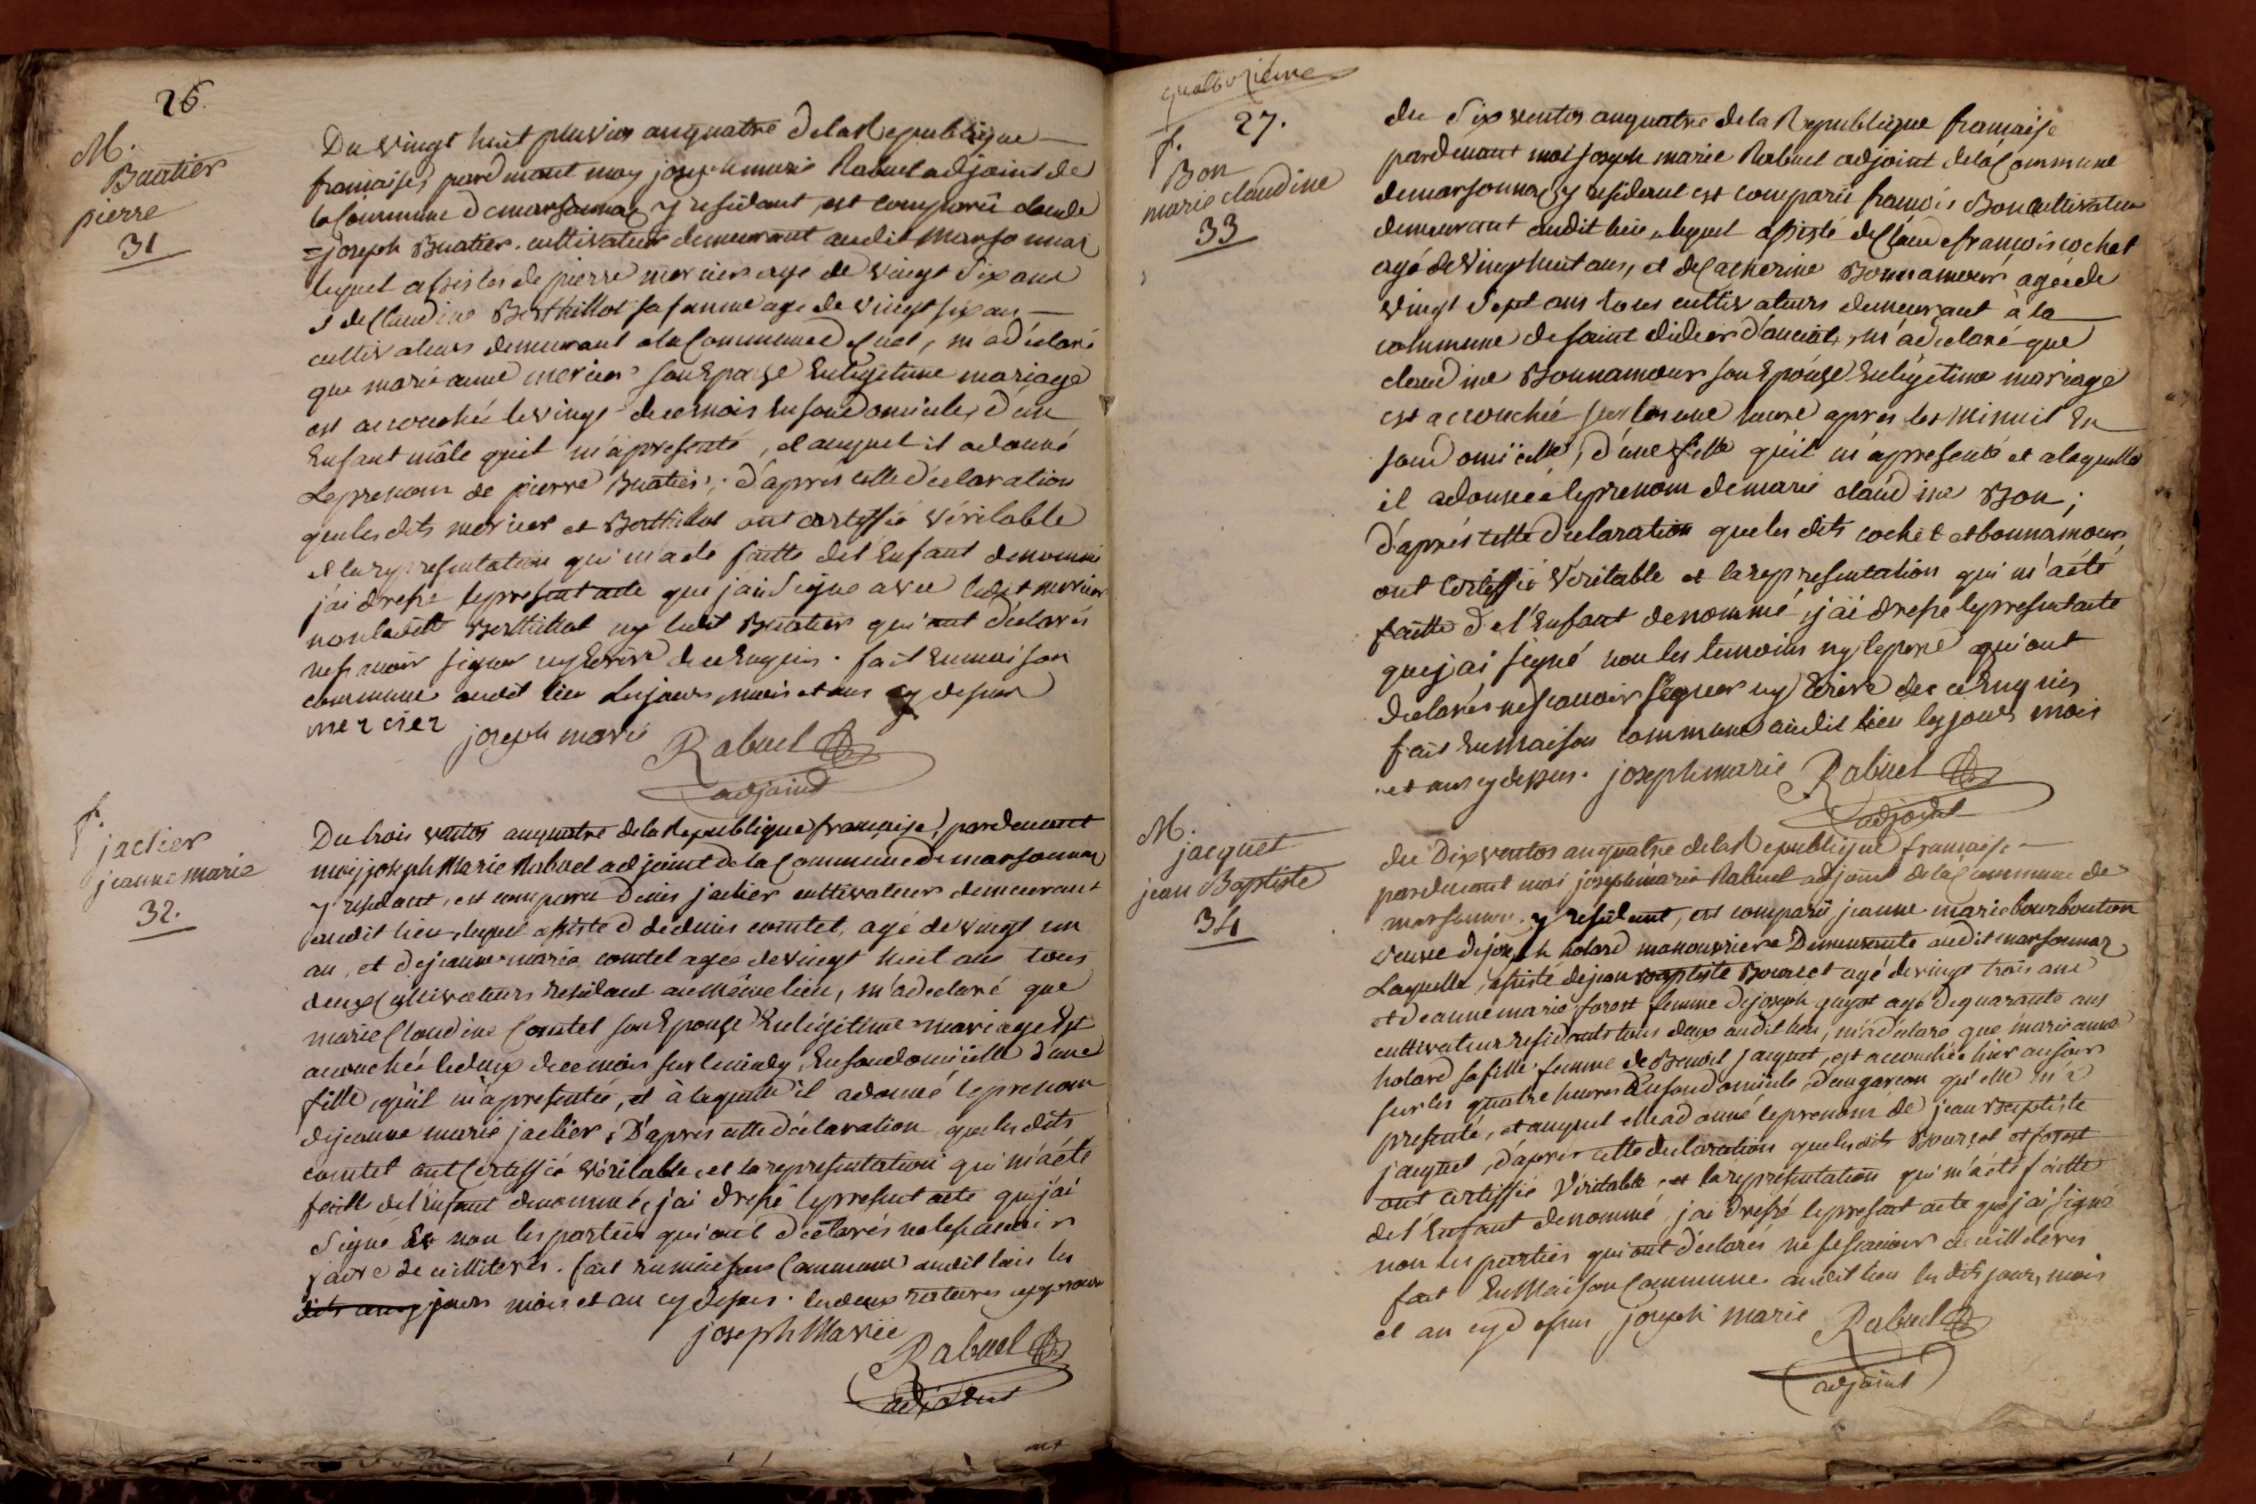 26.
M.
Buatier
pierre
31
Du vingt huit pluvios anquatre delaRepublique
françaises pardevant moy joseph marie Rabuel adjoint de
la Commune demarsonnaz y residant est comparû claude
=joseph Buatier cultivateur demeurant audit Marsonnaz
lequel assistes de pierre mercier age de vingt six ans
et de Claudine Berthillot sa femme age de vingt six ans
cultivateurs demeurant ala Commune de Cuet, m'adéclaré
que marianne mercier son Epouse Enlegitime mariage
est accouchée levingt decemois Ensondomicile, d'un
Enfant mâle quil m'apresenté, et auquel il adonné
Leprenom de pierre Buatier; d'aprés cette déclaration
queles dits mercier et Berthillot ont certiffié véritable
et la representation qui m'a été faitte del Enfant denommé
j'ai dressé lepresent acte que j'ai Signe avec ledit mercier
non laditte Berthillot ny ledit Buatier qui ont déclarés
nesçavoir signer ny Ecrire dece Enquis. fait Enmaison
commune audit lieu Lesjours mois et ans cy dessus
mercier joseph marie Rabuel
adjoint
f.
jaclier
jeanne marie
32.
Du trois ventos anquatre delaRepublique française, pardevant
moy joseph Marie Rabuel adjoint dela Commune de marsonnaz
y residant, est comparu denis jaclier cultivateur demeurant
audit lieu, lequel assisté de denis comtet, agé de vingt un
an, et dejeanne marie comtet agée devingt huit ans tous
deux Cultivateurs residant aumême lieu, m'adeclaré que
marie Claudine Comtet son Epouse Enlégitime mariage Est
accouchée ledeux decemois surlemidy, Ensondomicille d'une
fille, qu'il m'apresentée, et à laquelle il adonné leprenom
dejeanne marie jaclier; D'apres cette déclaration queles dits
comtet ont Certiffié véritable et la representation qui m'aété
faitte del'Enfant denommé, j'ai dressé lepresent acte quej'ai
Signé non les parties qui ont déclarés ne le sçavoir
faire de ce illiterés. fait Enmaison Commune audit lieu les
jours mois et an cy dessus. les deux ratures approuvé
joseph Marie Rabuel
adjoint
quatorzième
27.
f.
Bon
marie claudine
33
du Six ventos anquatre dela Republique française
pardevant moi joseph marie Rabuel adjoint dela Commune
demarsonnaz y residant est comparû françois Bon cultivateur
demeurant audit lieu, lequel assisté de Claude françois cochet
agé de vingt huit ans, et de Catherine Bonnamour agée de
vingt Sept ans tous cultivateurs demeurant à la
commune de saint didier d'auciat, m'adeclaré que
claudine Bonnamour son Epouse Enlégitime mariage
est accouchée sur les une heure apres les Minuit En
sondomicille, d'une fille qu'il m'apresenté et alaquelle
il adonnée leprenom demarie claudine Bon;
d'aprés cette déclaration queles dits cochet et bonnamour
ont Certiffié Véritable et la representation qui m'aété
faitte del'Enfant denommé, j'ai dressé lepresent acte
quej'ai signé non les temoins ny lepere qui ont
declarés nesçavoir signer ny Ecrire de ce Enquis
fait En Maison commune audit lieu les jours mois
et ans cy dessus. joseph marie Rabuel
adjoint
M.
jacquet
jean Baptiste
34
du Dix ventos anquatre delaRepublique française
pardevant moi joseph marie Rabuel adjoint dela Commune de
marsonnaz y residant, est comparû jeanne marie bourbouton
veuve dejoseph holard manouvriere Demeurante audit marsonnaz
Laquelle assisté dejean Baptiste Bourcet agé devingt trois ans
et deannemarie forest femme dejoseph guyot agé dequarante ans
cultivateur residants tous deux audit lieu, m'adéclaré que marianne
holard sa fille femme de Benoit jacquet, est accouchée hier ausoir
sur les quatre heures Ensondomicile, d'un garcon qu'elle m'a
presenté, et auquel ellea donné leprenom de jean Baptiste
jacquet, d'aprés cette declaration queles dits Bourcet et forest
ont certiffié Véritable, et la représentation qui m'a été faitte
del'Enfant denommé, j'ai dressé lepresent acte quej'ai signé
non les parties qui ont déclarés ne lesçavoir ce illiterés
fait EnMaison Commune audit lieu les dits jours, mois
et an cy dessus joseph marie Rabuel
adjoint